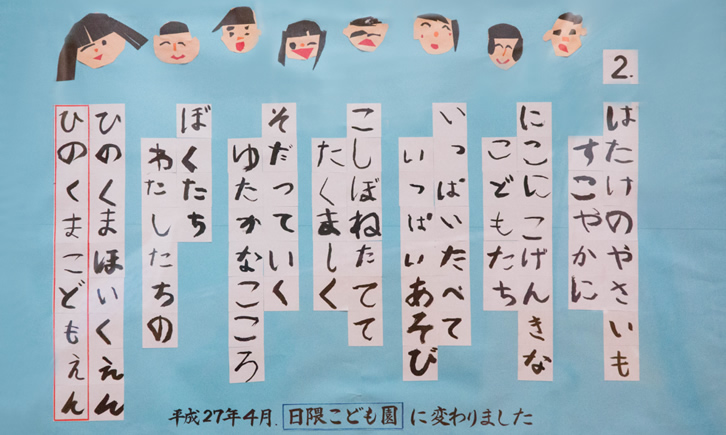 2.
はたけのやさいも
すこやかに
にこにこげんきな
こどもたち
いっぱいたべて
いっぱいあそび
こしぼねたてて
たくましく
そだっていく
ゆたかなこころ
ぼくたち
わたしたちの
ひのくまほいくえん
ひのくまこどもえん
平成27年4月. 日隈こども園 に変わりました